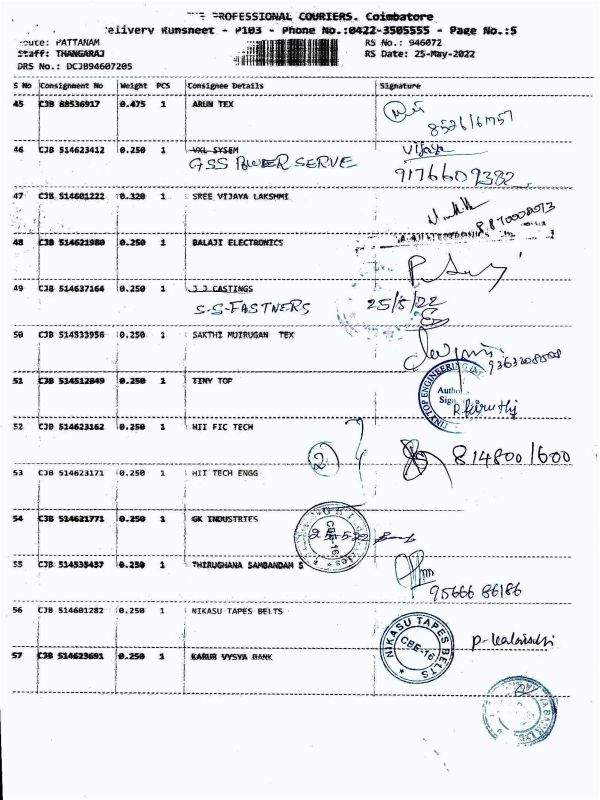 THE PROFESSIONAL COURIERS. Coimbatore
Delivery Runsheet - P103 - Phone No.:0422-3505555 - Page No.:5
Route: PATTANAM RS No.: 946072
Staff: THANGARAJ RS Date: 25-May-2022
DRS No.: DCJB94607205
S No Consignment No Weight PCS Consignee Details Signature
45 CJB 88536917 0.475 1 ARUN TEX
46 CJB 514623412 0.250 1 VXL SYSEM Vijaya
GSS POWER SERVE 9176609382
47 CJB 514601222 0.320 1 SREE VIJAYA LAKSHMI
48 CJB 514621980 0.250 1 BALAJI ELECTRONICS
49 CJB 514637164 0.250 1 J J CASTINGS
S-S-FASTNERS 25/5/22
50 CJB 514533956 0.250 1 SAKTHI MUIRUGAN TEX
9363208508
51 CJB 514512849 0.250 1 TINY TOP
TINY TOP ENGINEERING
52 CJB 514623162 0.250 1 HII FIC TECH
2 814800/600
53 CJB 514623171 0.250 1 HIT TECH ENGG
54 CJB 514621771 0.250 1 GK INDUSTRIES
CBE-16
55 CJB 514535457 0.250 1 THIRUGHANA SAMBANDAM S
95666 86186
56 CJB 514601282 0.250 1 NIKASU TAPES BELTS
NIKASU TAPES BELTS
CBE-16
57 CJB 514623691 0.250 1 KARUR VYSYA BANK